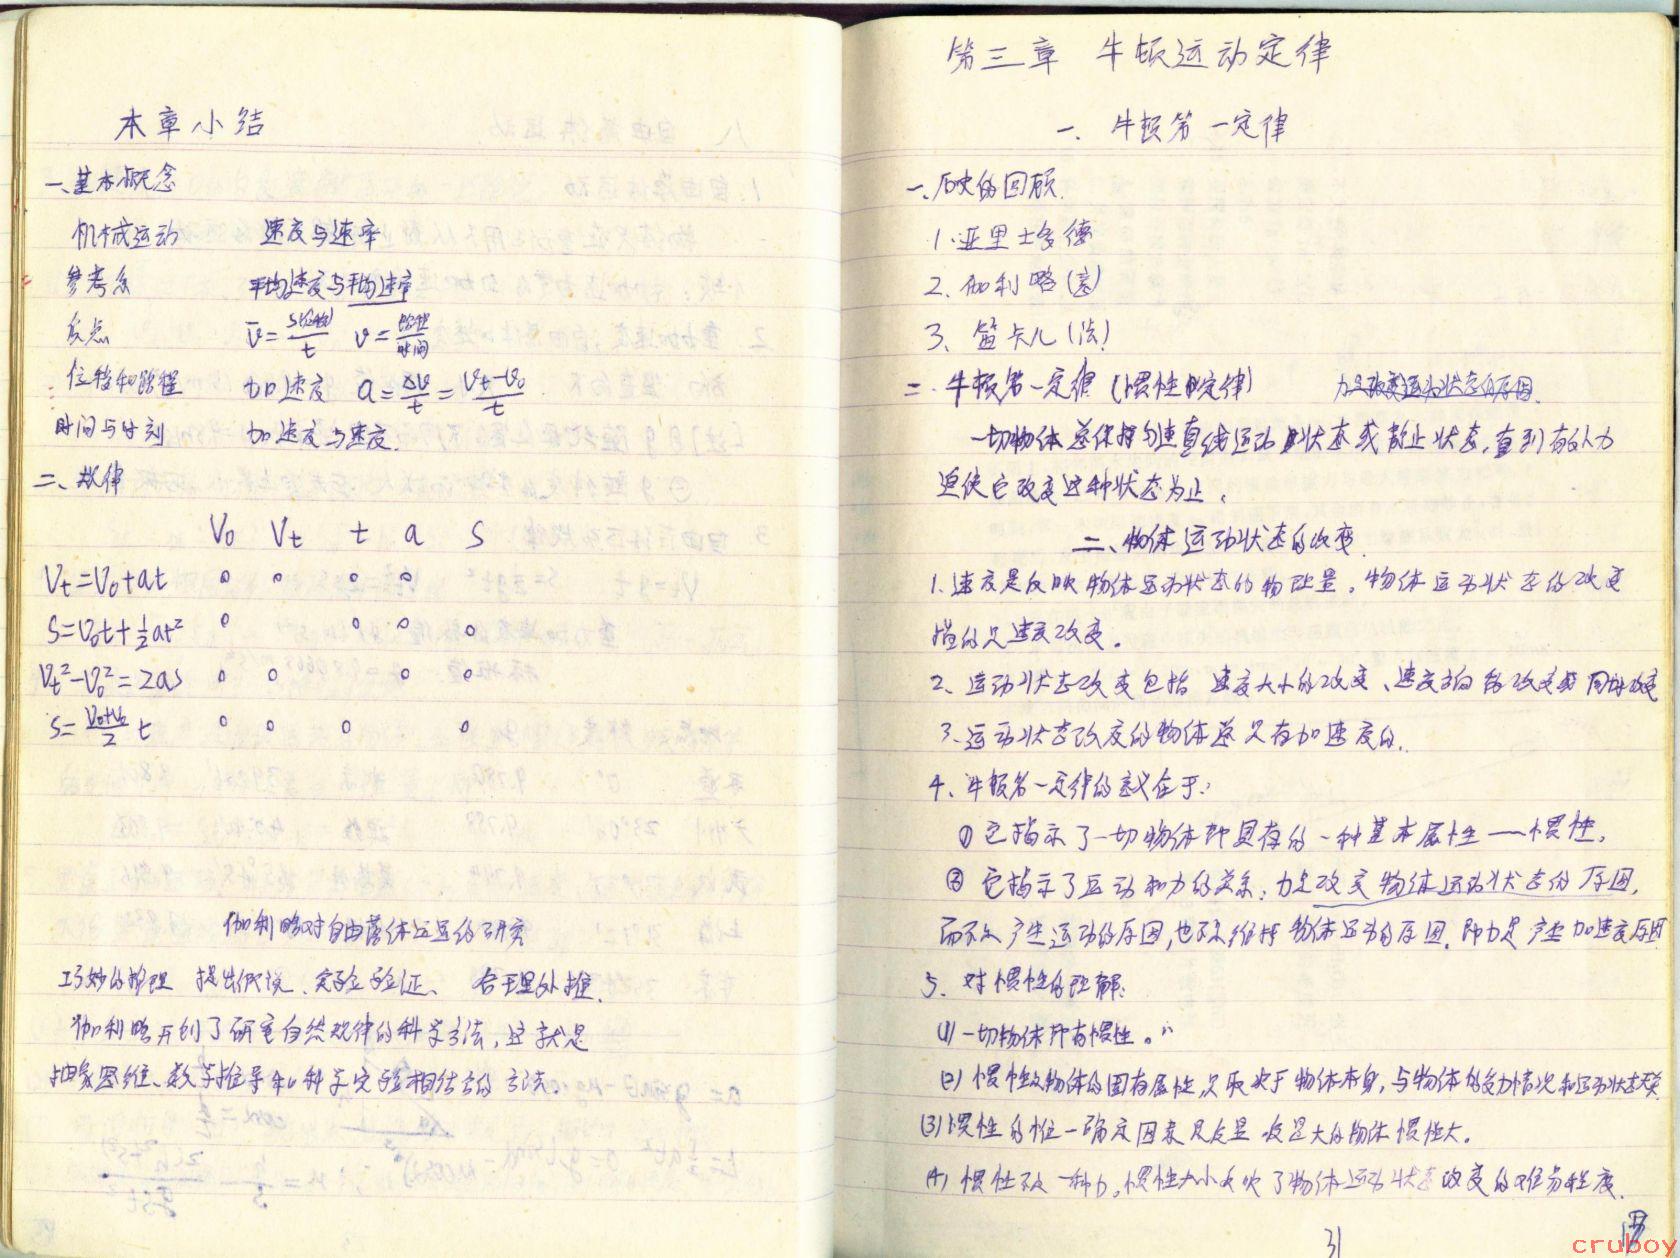 本章小结
一、基本概念
机械运动 速度与速率
参考系 平均速度与平均速率
质点 v̄=S(位移)/t v=路程/时间
位移和路程 加速度 a=Δv/t=(Vt-V0)/t
时间与时刻 加速度与速度.
二、规律
V0 Vt t a S
Vt=V0+at o o o o
S=V0t+½at² o o o o
Vt²-V0²=2as o o o o
S=(V0+Vt)/2 t o o o o
伽利略对自由落体运动的研究
巧妙的推理 提出假说、实验验证、 合理外推.
伽利略开创了研究自然规律的科学方法,这就是
抽象思维、数学推导和科学实验相结合的方法.
第三章 牛顿运动定律
一、牛顿第一定律
一、历史的回顾
1.亚里士多德
2、伽利略(意)
3、笛卡儿(法)
二、牛顿第一定律(惯性定律) 力是改变运动状态的原因.
一切物体总保持匀速直线运动状态或静止状态,直到有外力
迫使它改变这种状态为止.
二、物体运动状态的改变.
1.速度是反映物体运动状态的物理量,物体运动状态的改变
指的是速度改变.
2、运动状态改变包括 速度大小的改变、速度方向的改变或同时改变
3、运动状态改变的物体总是有加速度的.
4、牛顿第一定律的意义在于:
① 它指示了一切物体都具有的一种基本属性——惯性.
② 它指示了运动和力的关系:力是改变物体运动状态的原因,
而不是产生运动的原因,也不是维持物体运动的原因.即力是产生加速度原因
5、对惯性的理解:
(1)一切物体都有惯性。
(2)惯性是物体的固有属性,只取决于物体本身,与物体的受力情况和运动状态无关
(3)惯性的惟一确定因素是质量 质量大的物体惯性大.
(4)惯性不是一种力,惯性大小反映了物体运动状态改变的难易程度.
31
cruboy